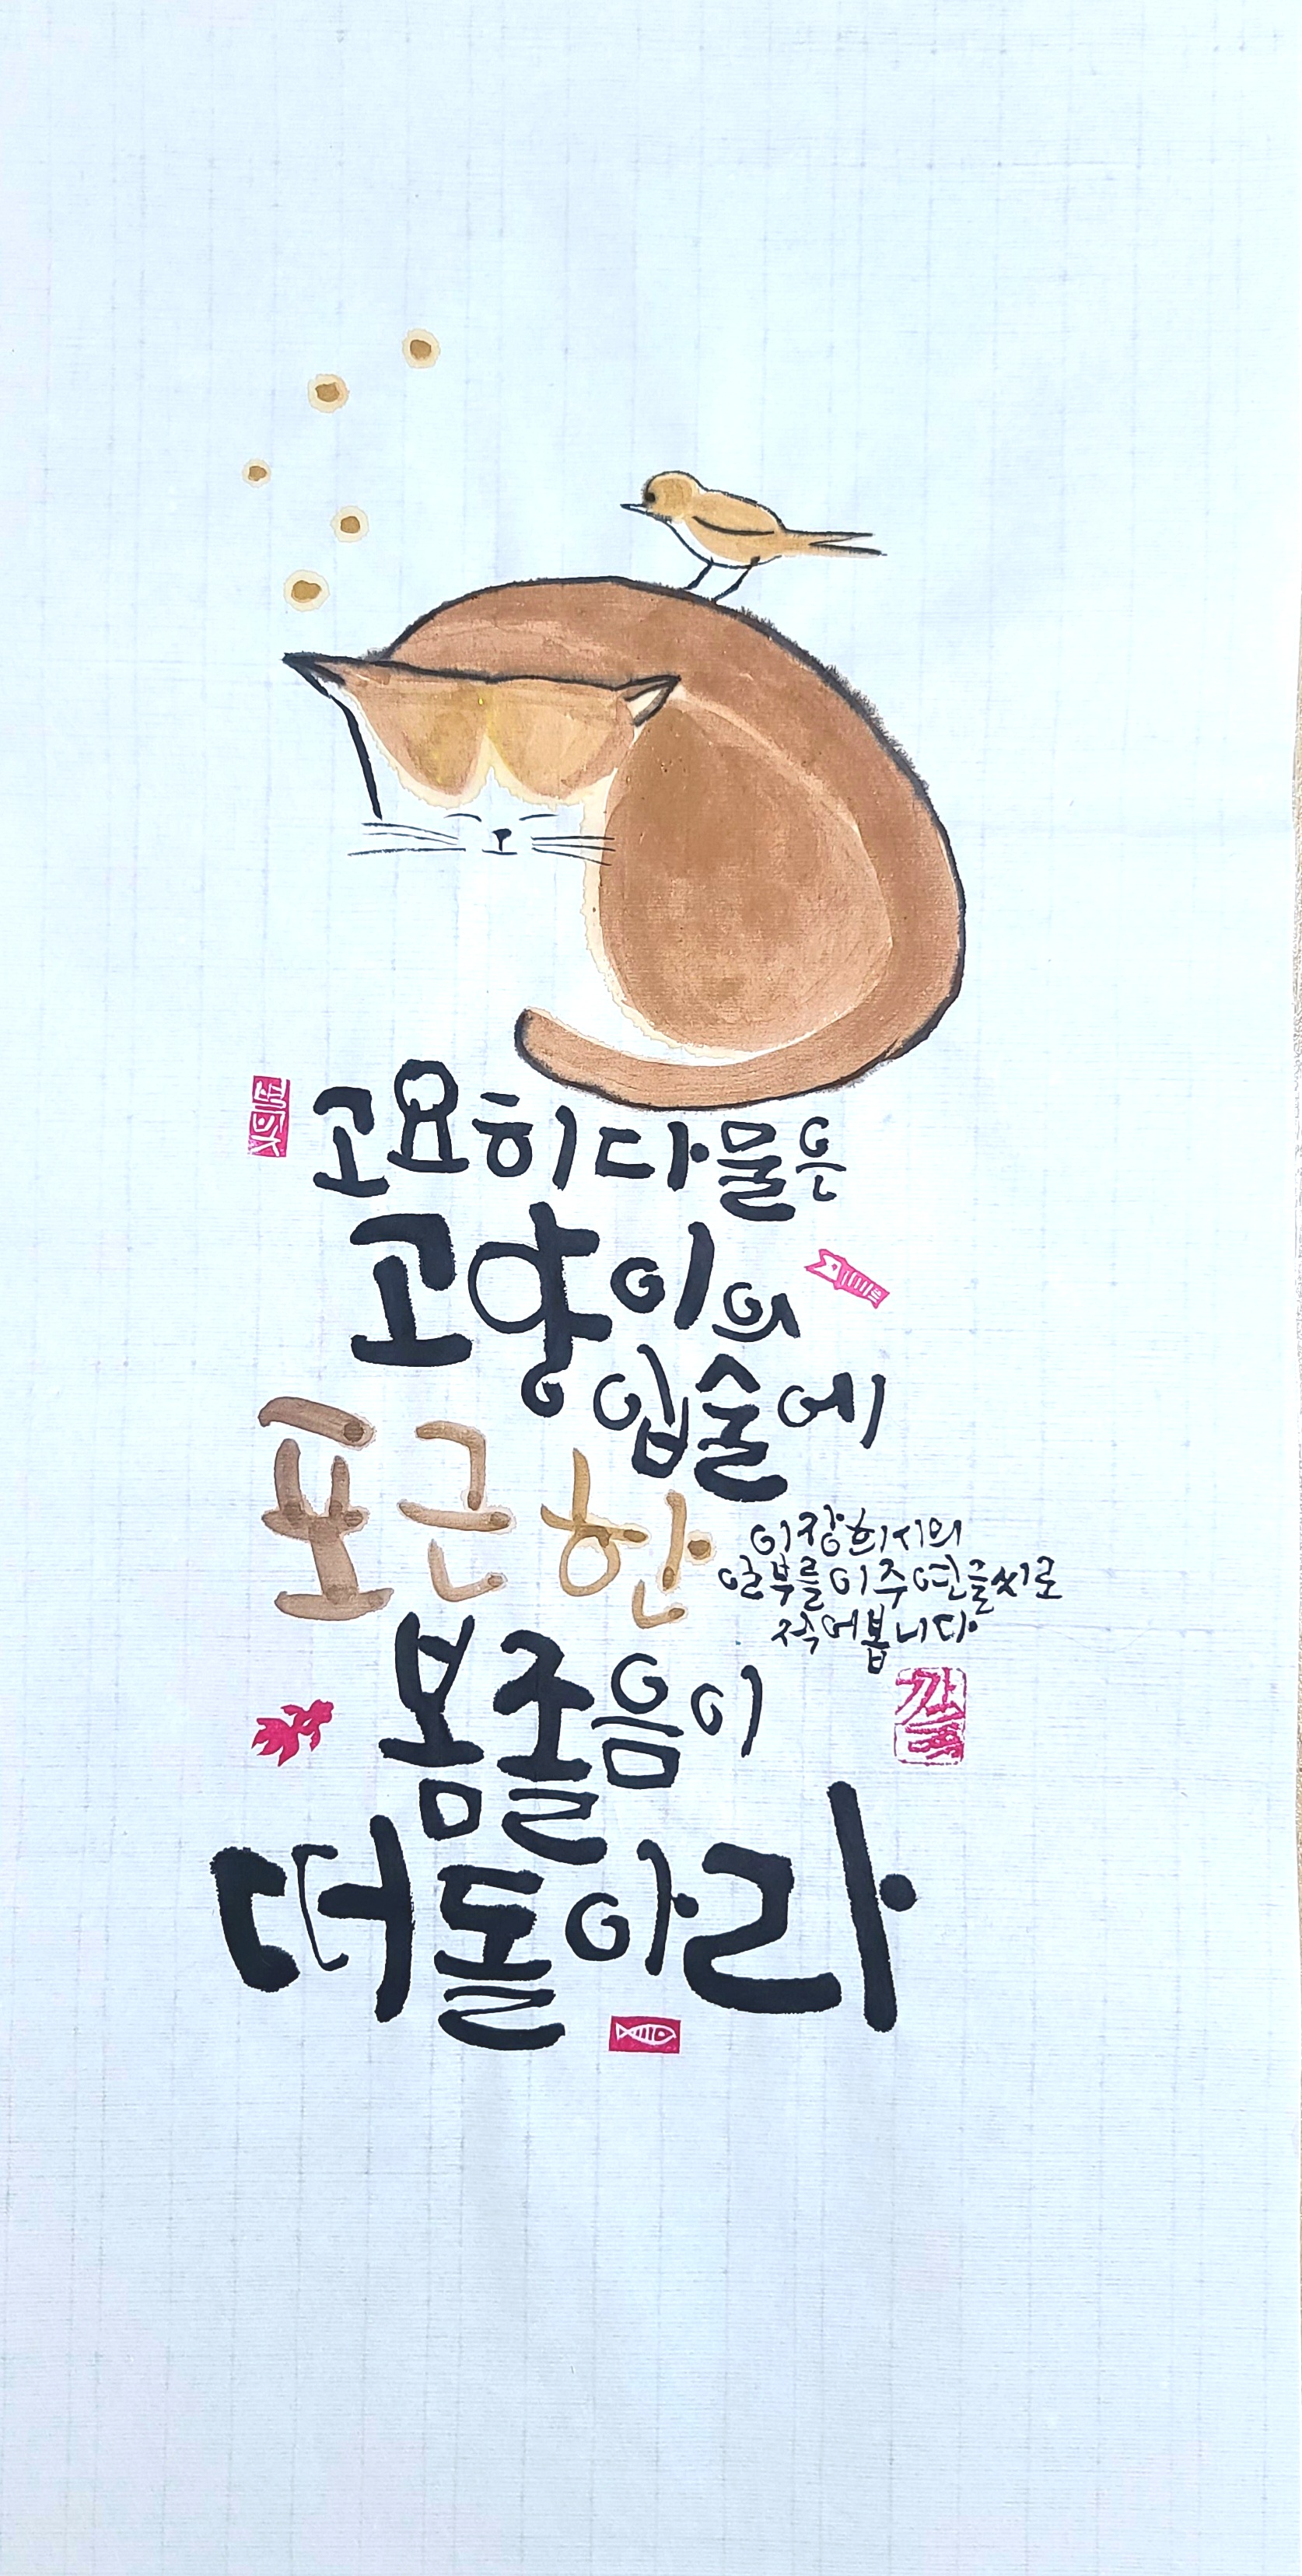 고요히 다물은
고양이의
입술에
포근한
봄 졸음이
떠돌아라
이장희 시의
일부를 이주연 글씨로
적어봅니다